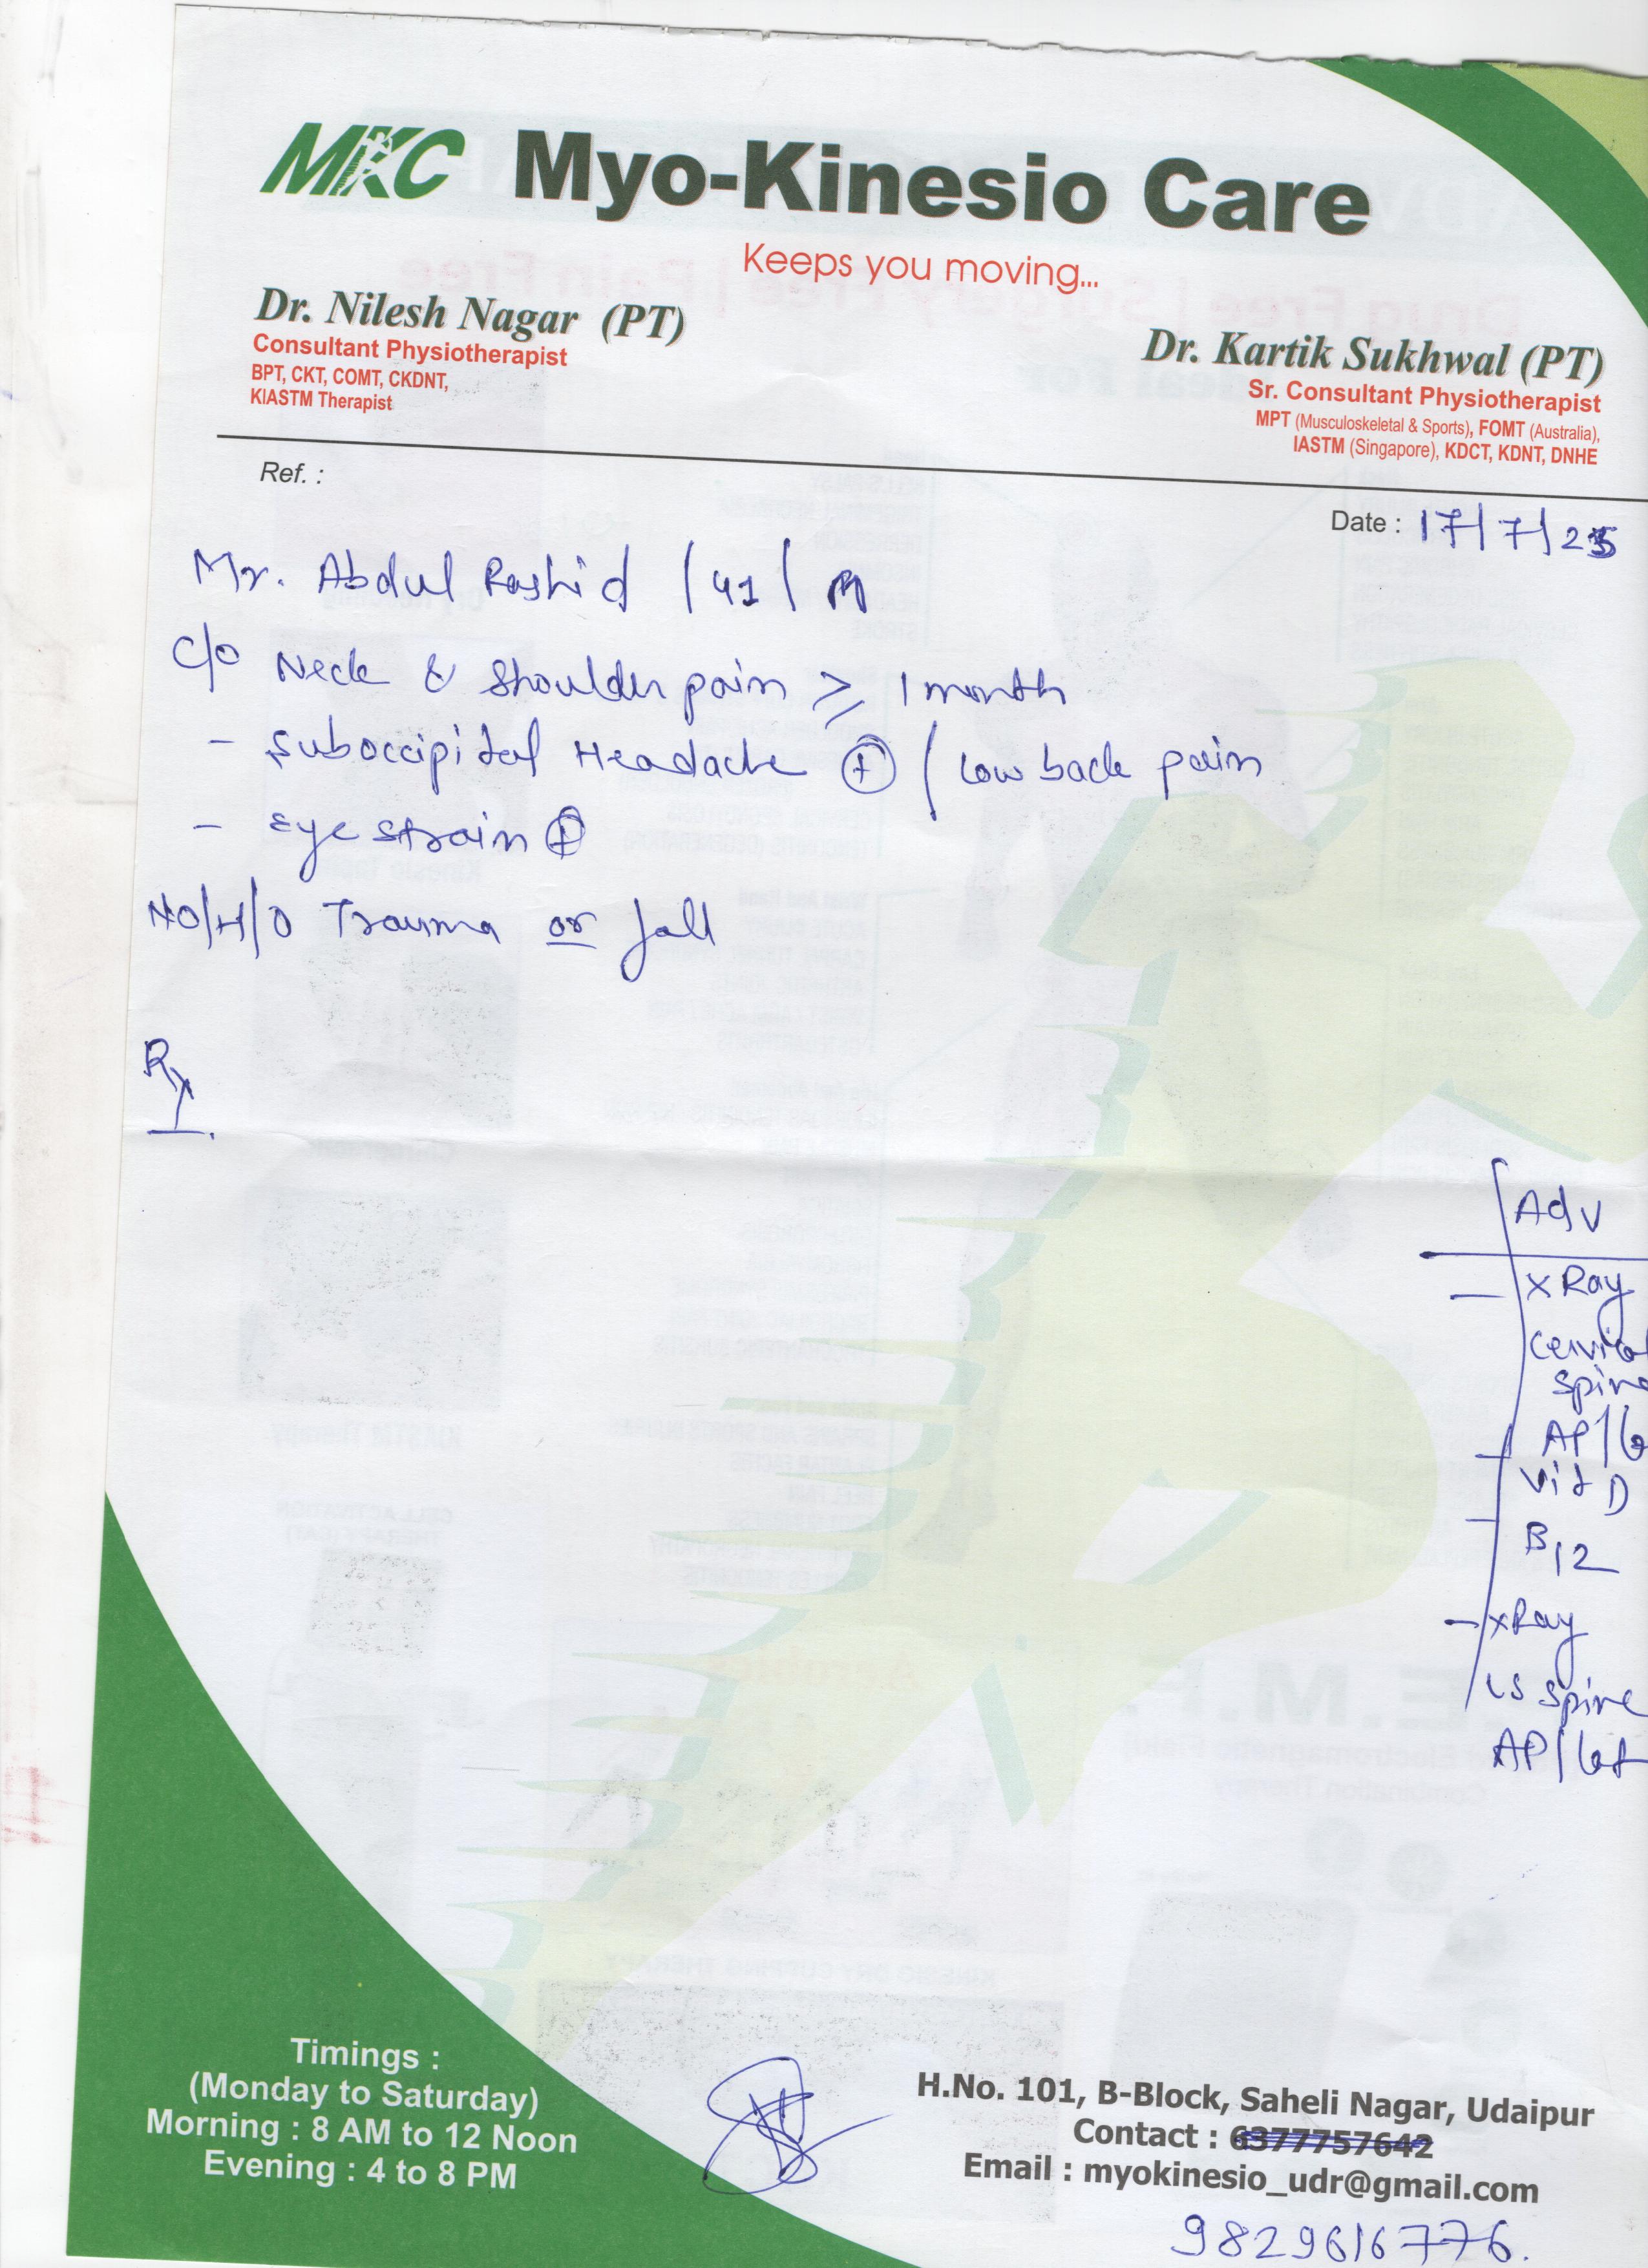 MKC Myo-Kinesio Care
Keeps you moving...
Dr. Nilesh Nagar (PT)
Consultant Physiotherapist
BPT, CKT, COMT, CKDNT,
KIASTM Therapist
Dr. Kartik Sukhwal (PT)
Sr. Consultant Physiotherapist
MPT (Musculoskeletal & Sports), FOMT (Australia),
IASTM (Singapore), KDCT, KDNT, DNHE
Ref. :
Date : 17/7/25
Mr. Abdul Rashid / 41 / M
C/o Neck & Shoulder pain ⩾ 1 month
- Suboccipital Headache ⊕ / Low back pain
- Eye strain ⊕
NO/H/O Trauma or fall
Rx
Adv
- X Ray
Cervical
Spine
AP/
- Vit D
- B12
- X Ray
LS Spine
AP/Lat
Timings :
(Monday to Saturday)
Morning : 8 AM to 12 Noon
Evening : 4 to 8 PM
H.No. 101, B-Block, Saheli Nagar, Udaipur
Contact : 6377757642
Email : myokinesio_udr@gmail.com
9829616776.